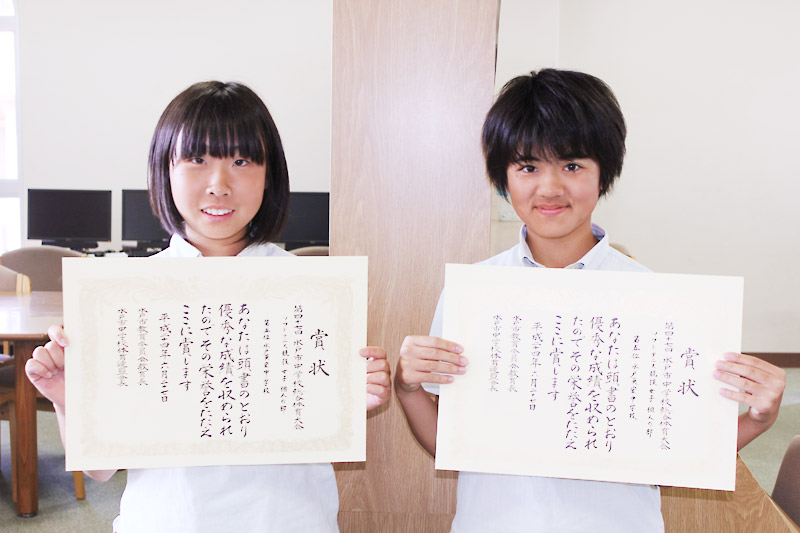 賞状
第四十七回 水戸市中学校総合体育大会
ソフトテニス競技 女子 個人の部
第五位 水戸英宏中学校
あなたは頭書のとおり
優秀な成績を収められ
たのでその栄誉をたたえ
ここに賞します
平成二十四年六月二十七日
水戸市教育委員会教育長
水戸市中学校体育連盟会長
賞状
第四十七回 水戸市中学校総合体育大会
ソフトテニス競技 女子 個人の部
第五位 水戸英宏中学校
あなたは頭書のとおり
優秀な成績を収められ
たのでその栄誉をたたえ
ここに賞します
平成二十四年六月二十七日
水戸市教育委員会教育長
水戸市中学校体育連盟会長